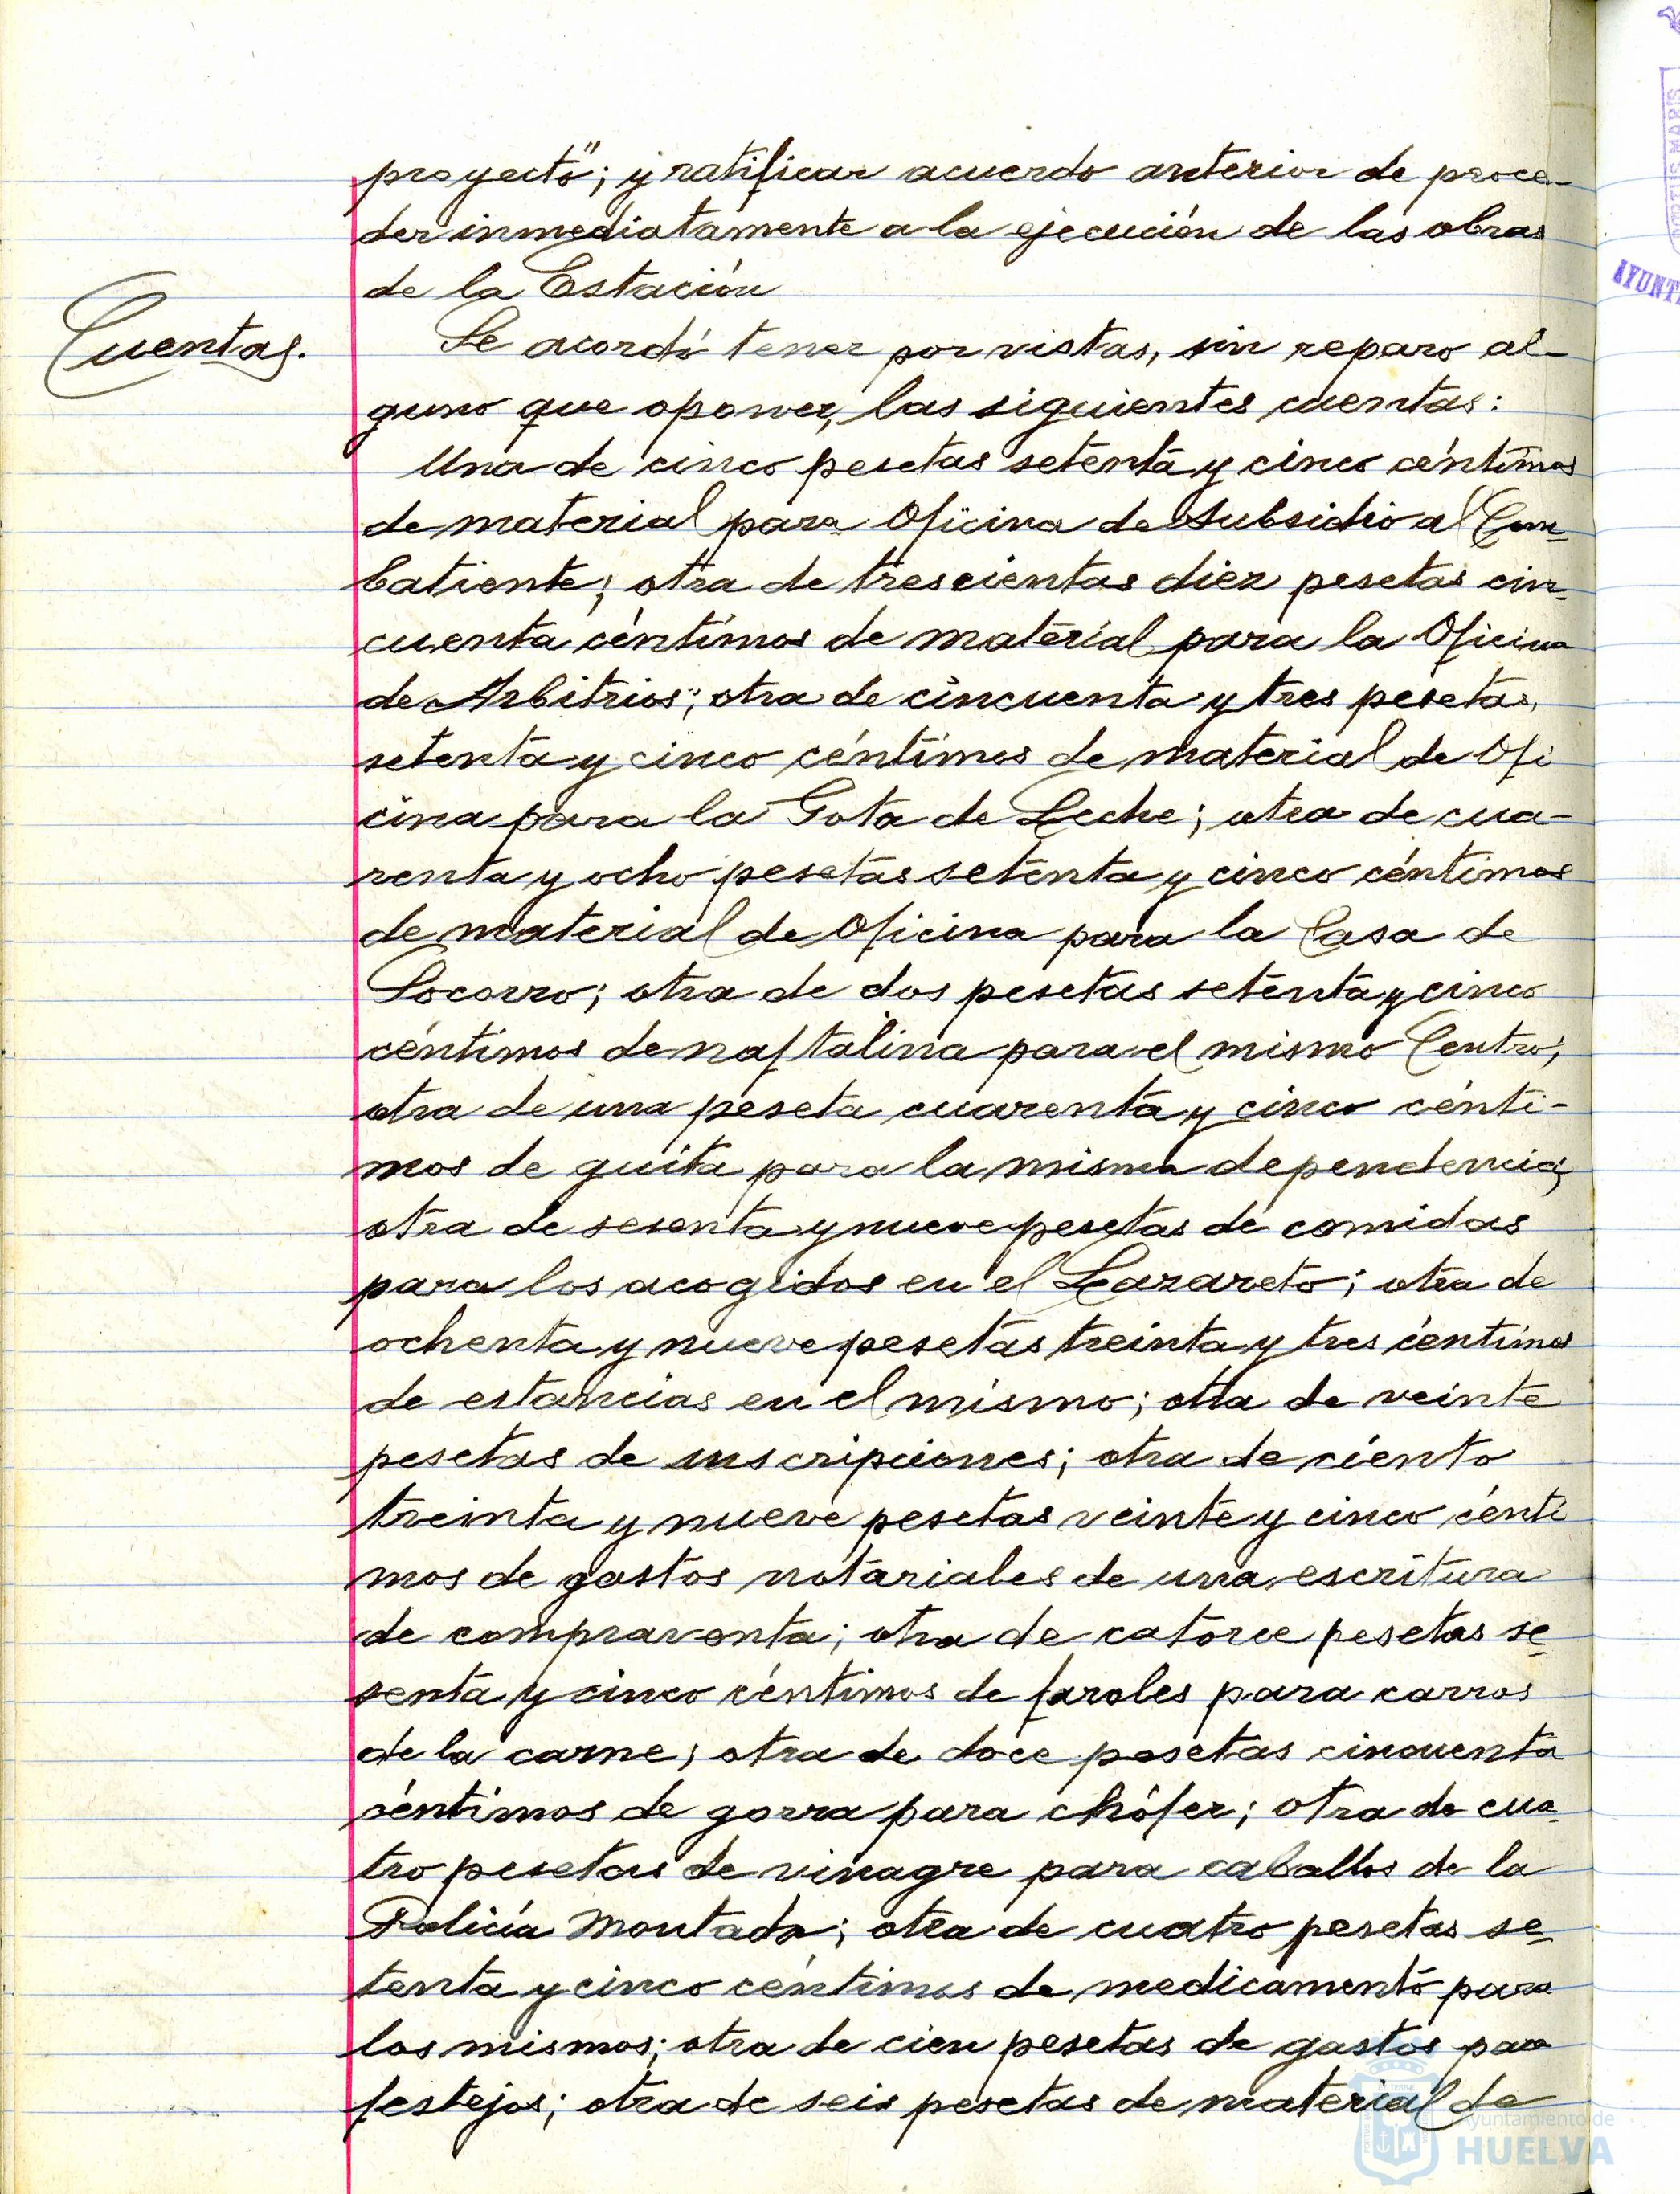 proyecto"; y ratificar acuerdo anterior de proce-
der inmediatamente a la ejecución de las obras
de la Estación
Cuentas.
Se acordó tener por vistas, sin reparo al-
guno que oponer, las siguientes cuentas:
Una de cinco pesetas setenta y cinco céntimos
de material para Oficina de Subsidio al Com-
batiente; otra de trescientas diez pesetas cin-
cuenta céntimos de material para la Oficina
de Arbitrios; otra de cincuenta y tres pesetas,
setenta y cinco céntimos de material de Ofi
cina para la Gota de Leche; otra de cua-
renta y ocho pesetas setenta y cinco céntimos
de material de Oficina para la Casa de
Socorro; otra de dos pesetas setenta y cinco
céntimos de naftalina para el mismo Centro;
otra de una peseta cuarenta y cinco cénti-
mos de guita para la misma dependencia;
otra de sesenta y nueve pesetas de comidas
para los acogidos en el Lazareto; otra de
ochenta y nueve pesetas treinta y tres céntimos
de estancias en el mismo; otra de veinte
pesetas de inscripciones; otra de ciento
treinta y nueve pesetas veinte y cinco cénti
mos de gastos notariales de una escritura
de compraventa; otra de catorce pesetas se-
senta y cinco céntimos de faroles para carros
de la carne; otra de doce pesetas cincuenta
céntimos de gorra para chófer; otra de cua-
tro pesetas de vinagre para caballos de la
Policía Montada; otra de cuatro pesetas se-
tenta y cinco céntimos de medicamento para
los mismos; otra de cien pesetas de gastos para
festejos; otra de seis pesetas de material de
PORTUS MARIS
AYUNT
Ayuntamiento de
HUELVA